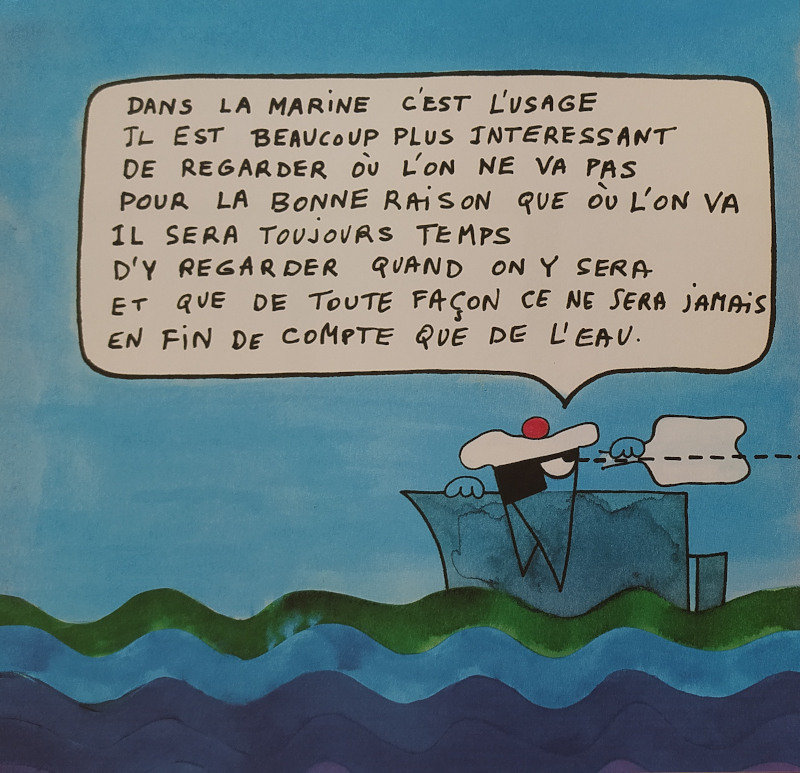 DANS LA MARINE C'EST L'USAGE
IL EST BEAUCOUP PLUS INTERESSANT
DE REGARDER OÙ L'ON NE VA PAS
POUR LA BONNE RAISON QUE OÙ L'ON VA
IL SERA TOUJOURS TEMPS
D'Y REGARDER QUAND ON Y SERA
ET QUE DE TOUTE FAÇON CE NE SERA JAMAIS
EN FIN DE COMPTE QUE DE L'EAU.